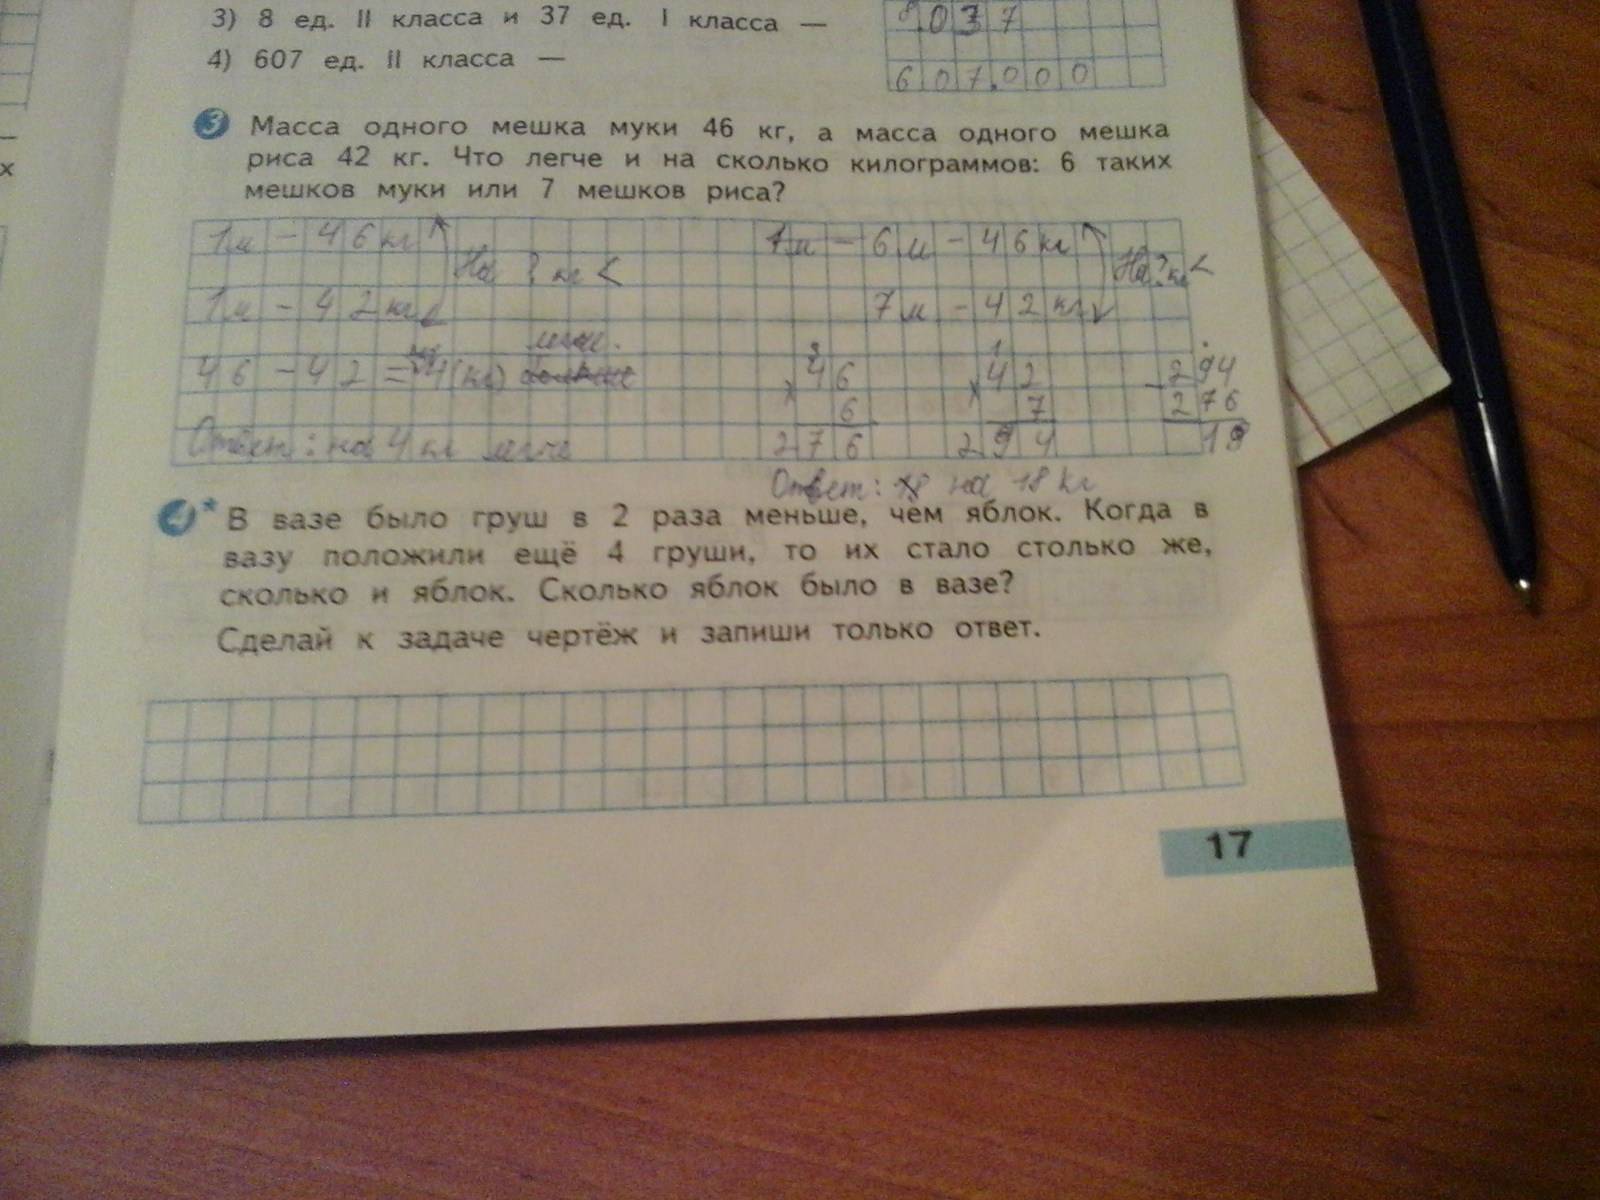 3) 8 ед. II класса и 37 ед. I класса —
8.037
4) 607 ед. II класса —
607.000
3 Масса одного мешка муки 46 кг, а масса одного мешка
риса 42 кг. Что легче и на сколько килограммов: 6 таких
мешков муки или 7 мешков риса?
1м - 46 кг
На ? кг <
1м - 42 кг
легче.
46 - 42 = 4 (кг)
Ответ: на 4 кг легче
1м - 6м - 46 кг
На ? кг <
7м - 42 кг
3
46
× 6
276
1
42
× 7
294
294
- 276
18
Ответ: 18 на 18 кг
4* В вазе было груш в 2 раза меньше, чем яблок. Когда в
вазу положили ещё 4 груши, то их стало столько же,
сколько и яблок. Сколько яблок было в вазе?
Сделай к задаче чертёж и запиши только ответ.
17
х